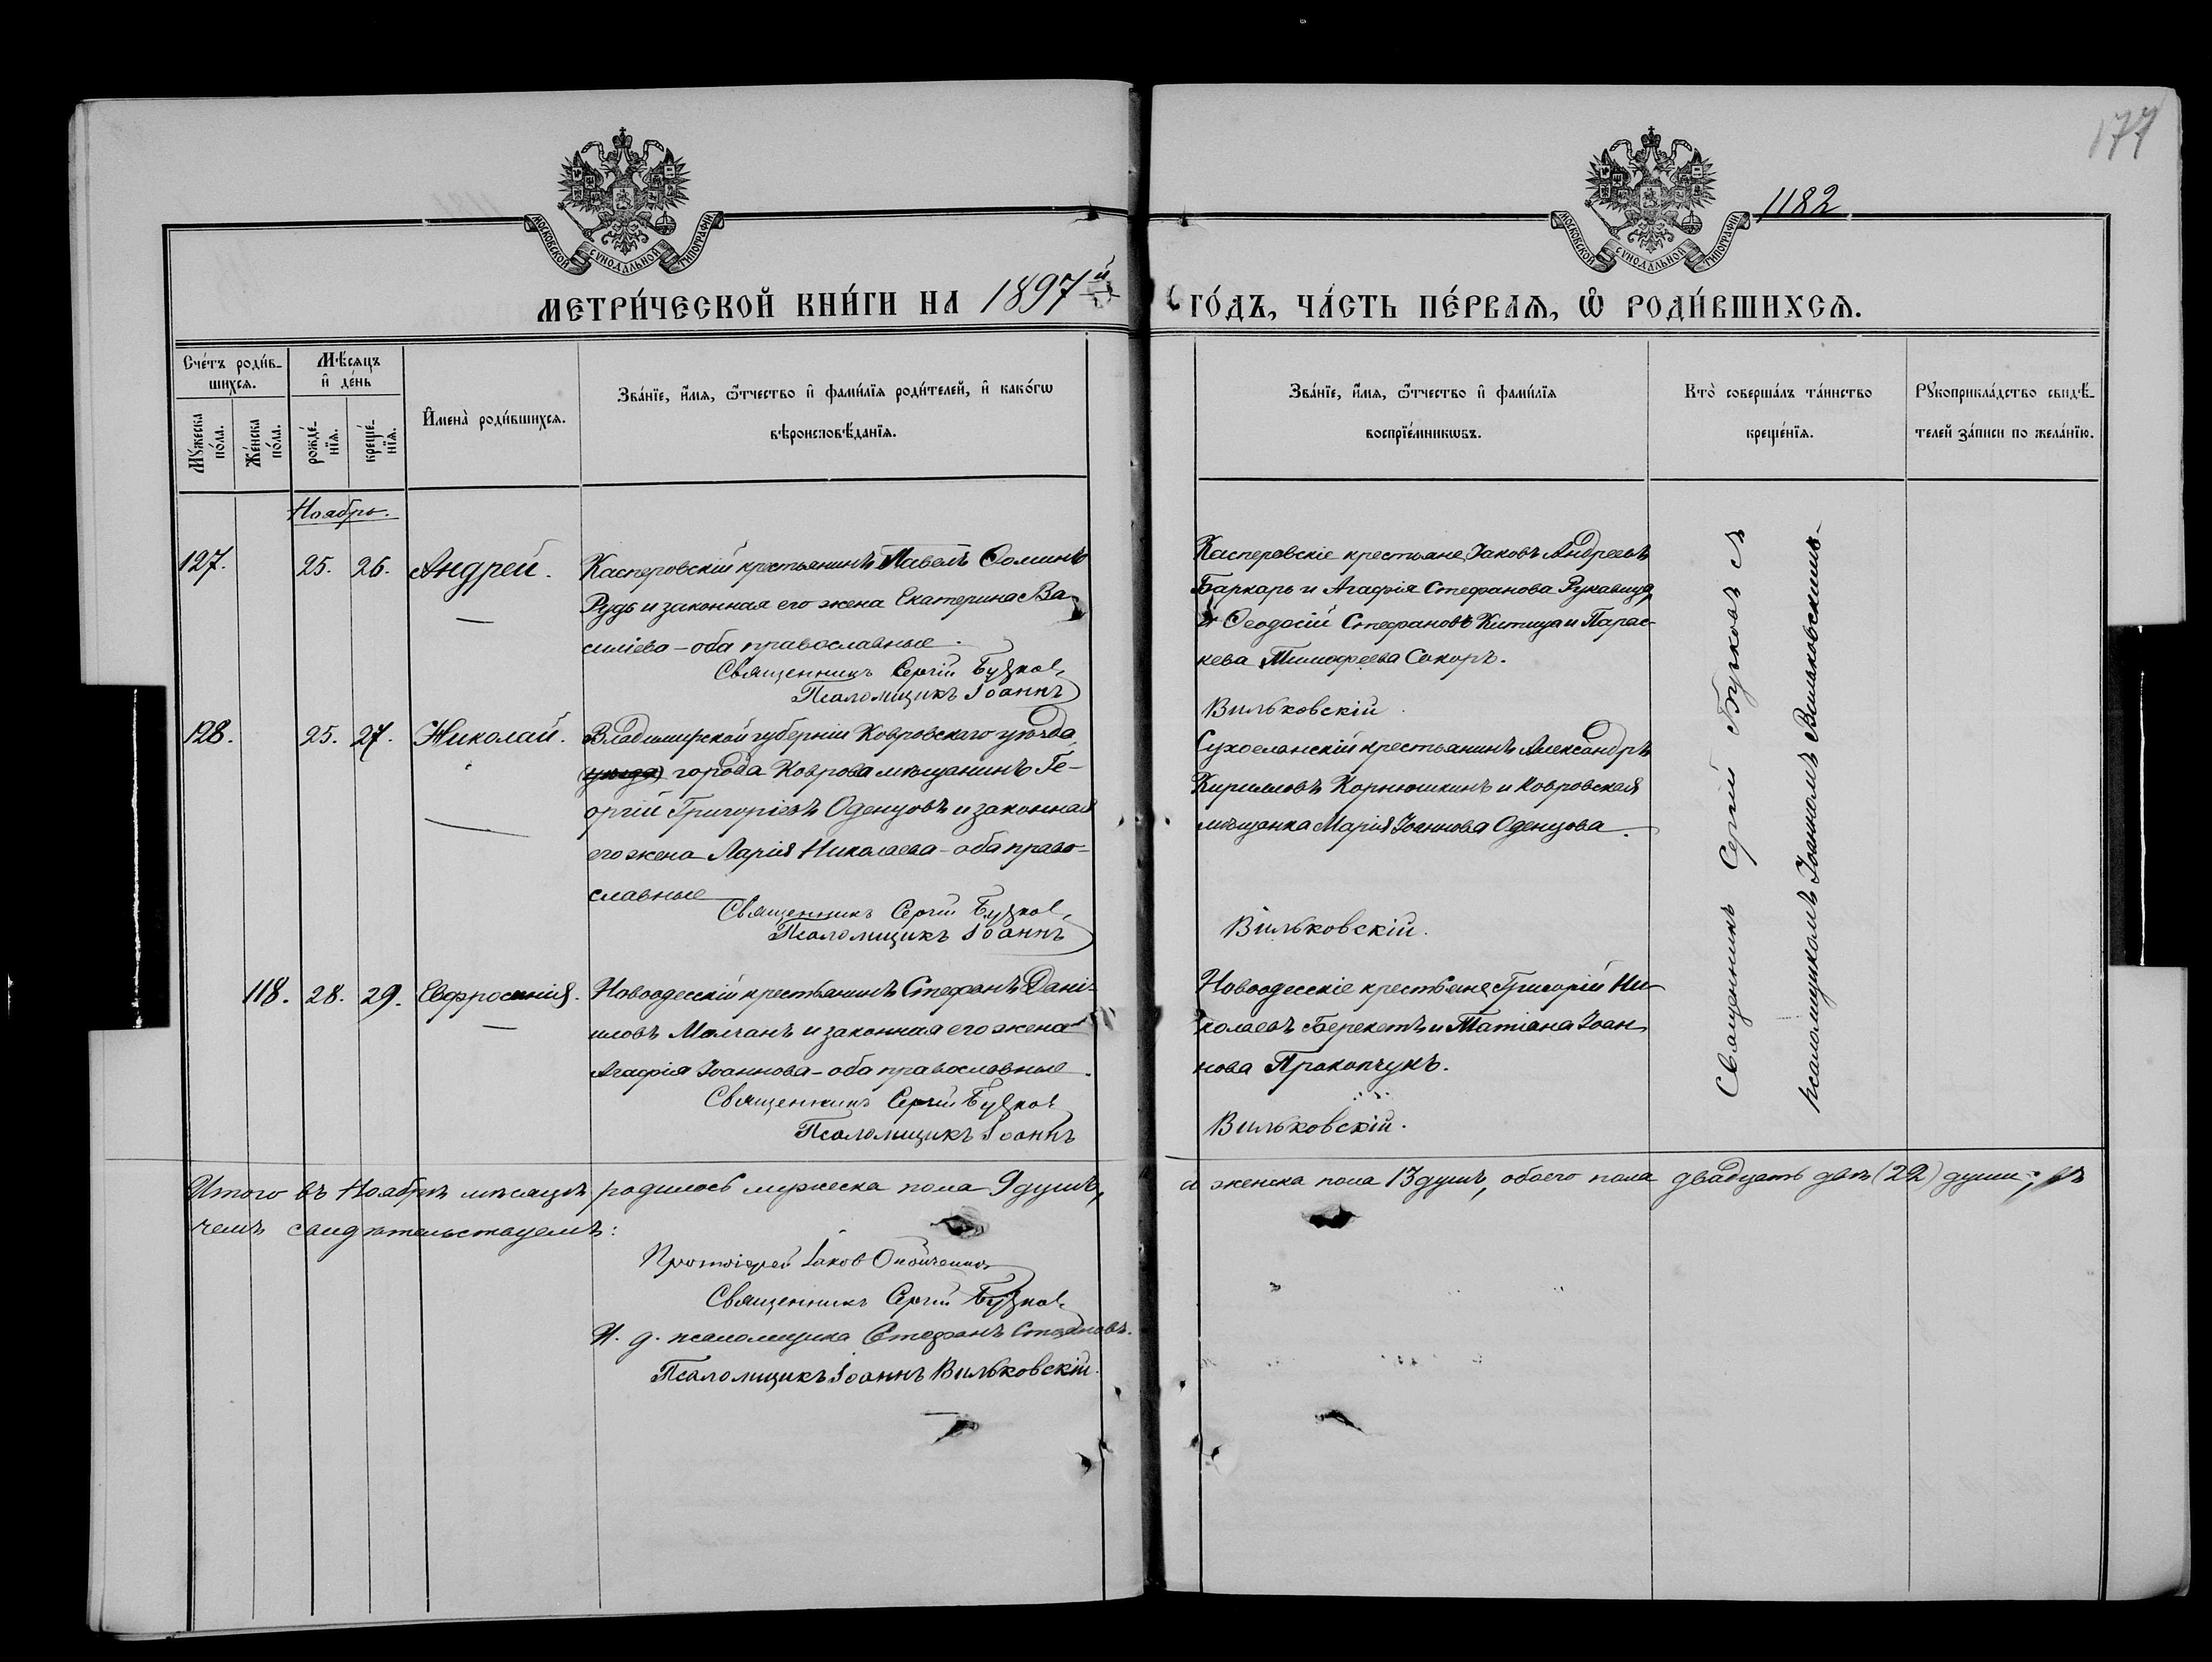 177
1182
МОСКОВСКОЙ СѴНОДАЛЬНОЙ ТИПОГРАФІИ
МОСКОВСКОЙ СѴНОДАЛЬНОЙ ТИПОГРАФІИ
МЕТРИ́ЧЕСКОЙ КНИ́ГИ НА 1897й ГО́ДЪ, ЧА́СТЬ ПЕ́РВАѦ, Ѡ РОДИ́ВШИХСѦ.
Сче́тъ роди́в-
шихсѧ.
Мꙋ́жеска по́ла.
Же́нска по́ла.
Мѣ́сѧцъ
и҆ де́нь
рожде́-
нїѧ.
креще́-
нїѧ.
И҆мена̀ роди́вшихсѧ.
Зва́нїе, и҆́мѧ, ѻ҆́тчество и҆ фами́лїѧ роди́телей, и҆ како́гѡ
вѣроисповѣ́данїѧ.
Зва́нїе, и҆́мѧ, ѻ҆́тчество и҆ фами́лїѧ
воспрїе́мникѡвъ.
Кто̀ соверша́лъ та́инство
креще́нїѧ.
Рꙋкоприкла́дство свидѣ́-
телей за́писи по жела́нїю.
Ноябрь.
127. 25. 26. Андрей.
Касперовскій крестьянинъ Павелъ Ѳоминъ
Рудь и законная его жена Екатерина Ва-
силіева – оба православные.
Священникъ Сергій Бужков
Псаломщикъ Іоаннъ
Касперовскіе крестьяне Іаковъ Андреевъ
Баркарь и Агафія Стефанова Рукавица,
Ѳеодосій Стефановъ Китица и Парас-
кева Тимофеева Сокоръ.
Вильковскій.
128. 25. 27. Николай.
Владимирской губерніи Ковровскаго уѣзда
(уѣзда) города Коврова мѣщанинъ Ге-
оргій Григоріевъ Оденцовъ и законная
его жена Дарія Николаева – оба право-
славные
Священникъ Сергій Бужков
Псаломщикъ Іоаннъ
Сухоеланскій крестьянинъ Александръ
Кирилловъ Корнюшкинъ и Ковровская
мѣщанка Марія Іоаннова Оденцова.
Вильковскій.
118. 28. 29. Евфросинія.
Новоодесскій крестьянинъ Стефанъ Дані-
иловъ Молчанъ и законная его жена
Агафія Іоаннова – оба православные.
Священникъ Сергій Бужков
Псаломщикъ Іоаннъ
Новоодесскіе крестьяне Григорій Ни-
колаевъ Берекетъ и Татіана Іоан-
нова Прокопчукъ.
Вильковскій.
Священникъ Сергій Бужковъ съ
псаломщикомъ Іоанномъ Вильковскимъ.
Итого въ Ноябрѣ мѣсяцѣ родилось мужеска пола 9 душъ, а женска пола 13 душъ, обоего пола двадцать двѣ (22) души; въ
чемъ свидѣтельствуемъ:
Протоіерей Іаков
Священникъ Сергій Бужков
И. д. псаломщика Стефанъ Стояновъ.
Псаломщикъ Іоаннъ Вильковскій.